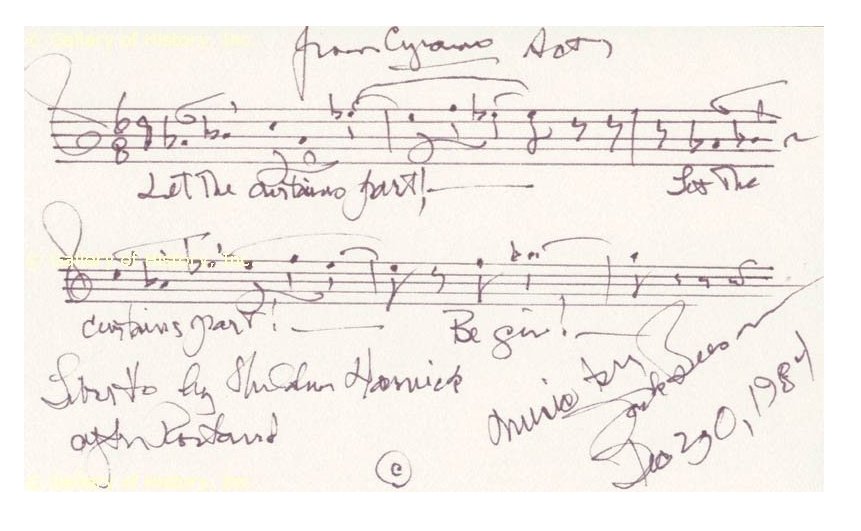 © Gallery of History, Inc.
from Cyrano Act
6
8
Let The curtains part! Let The
© Gallery of History, Inc.
curtains part! Begin!
Libretto by Sheldon Harnick
after Rostand
music by
Jack Beeson
Dec 30, 1984
©
© Gallery of History, Inc.